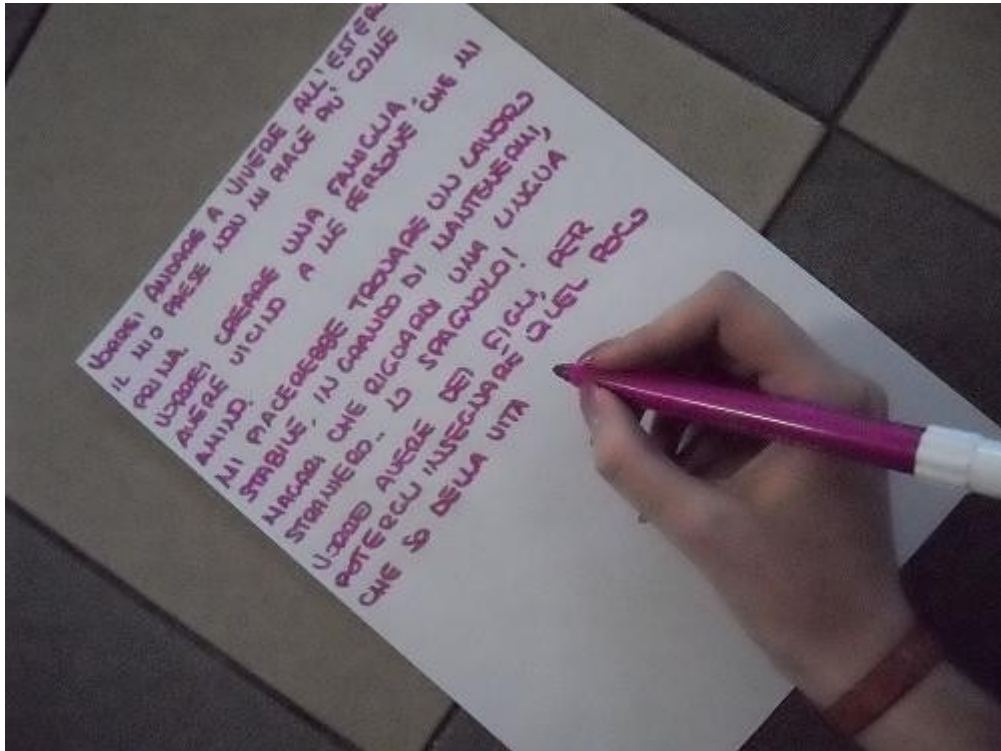 VORREI ANDARE A VIVERE ALL'ESTERO
IL MIO PAESE NON MI PIACE PIÙ COME
PRIMA.
VORREI CREARE UNA FAMIGLIA
AVERE VICINO A ME PERSONE CHE MI
AMINO.
MI PIACEREBBE TROVARE UN LAVORO
STABILE, IN GRANDO DI MANTENERMI,
MAGARI CHE RIGUARDI UNA LINGUA
STRANIERO.. LO SPAGNOLO!
VORREI AVERE DEI FIGLI, PER
POTERGLI INSEGNARE QUEL POCO
CHE SO DELLA VITA